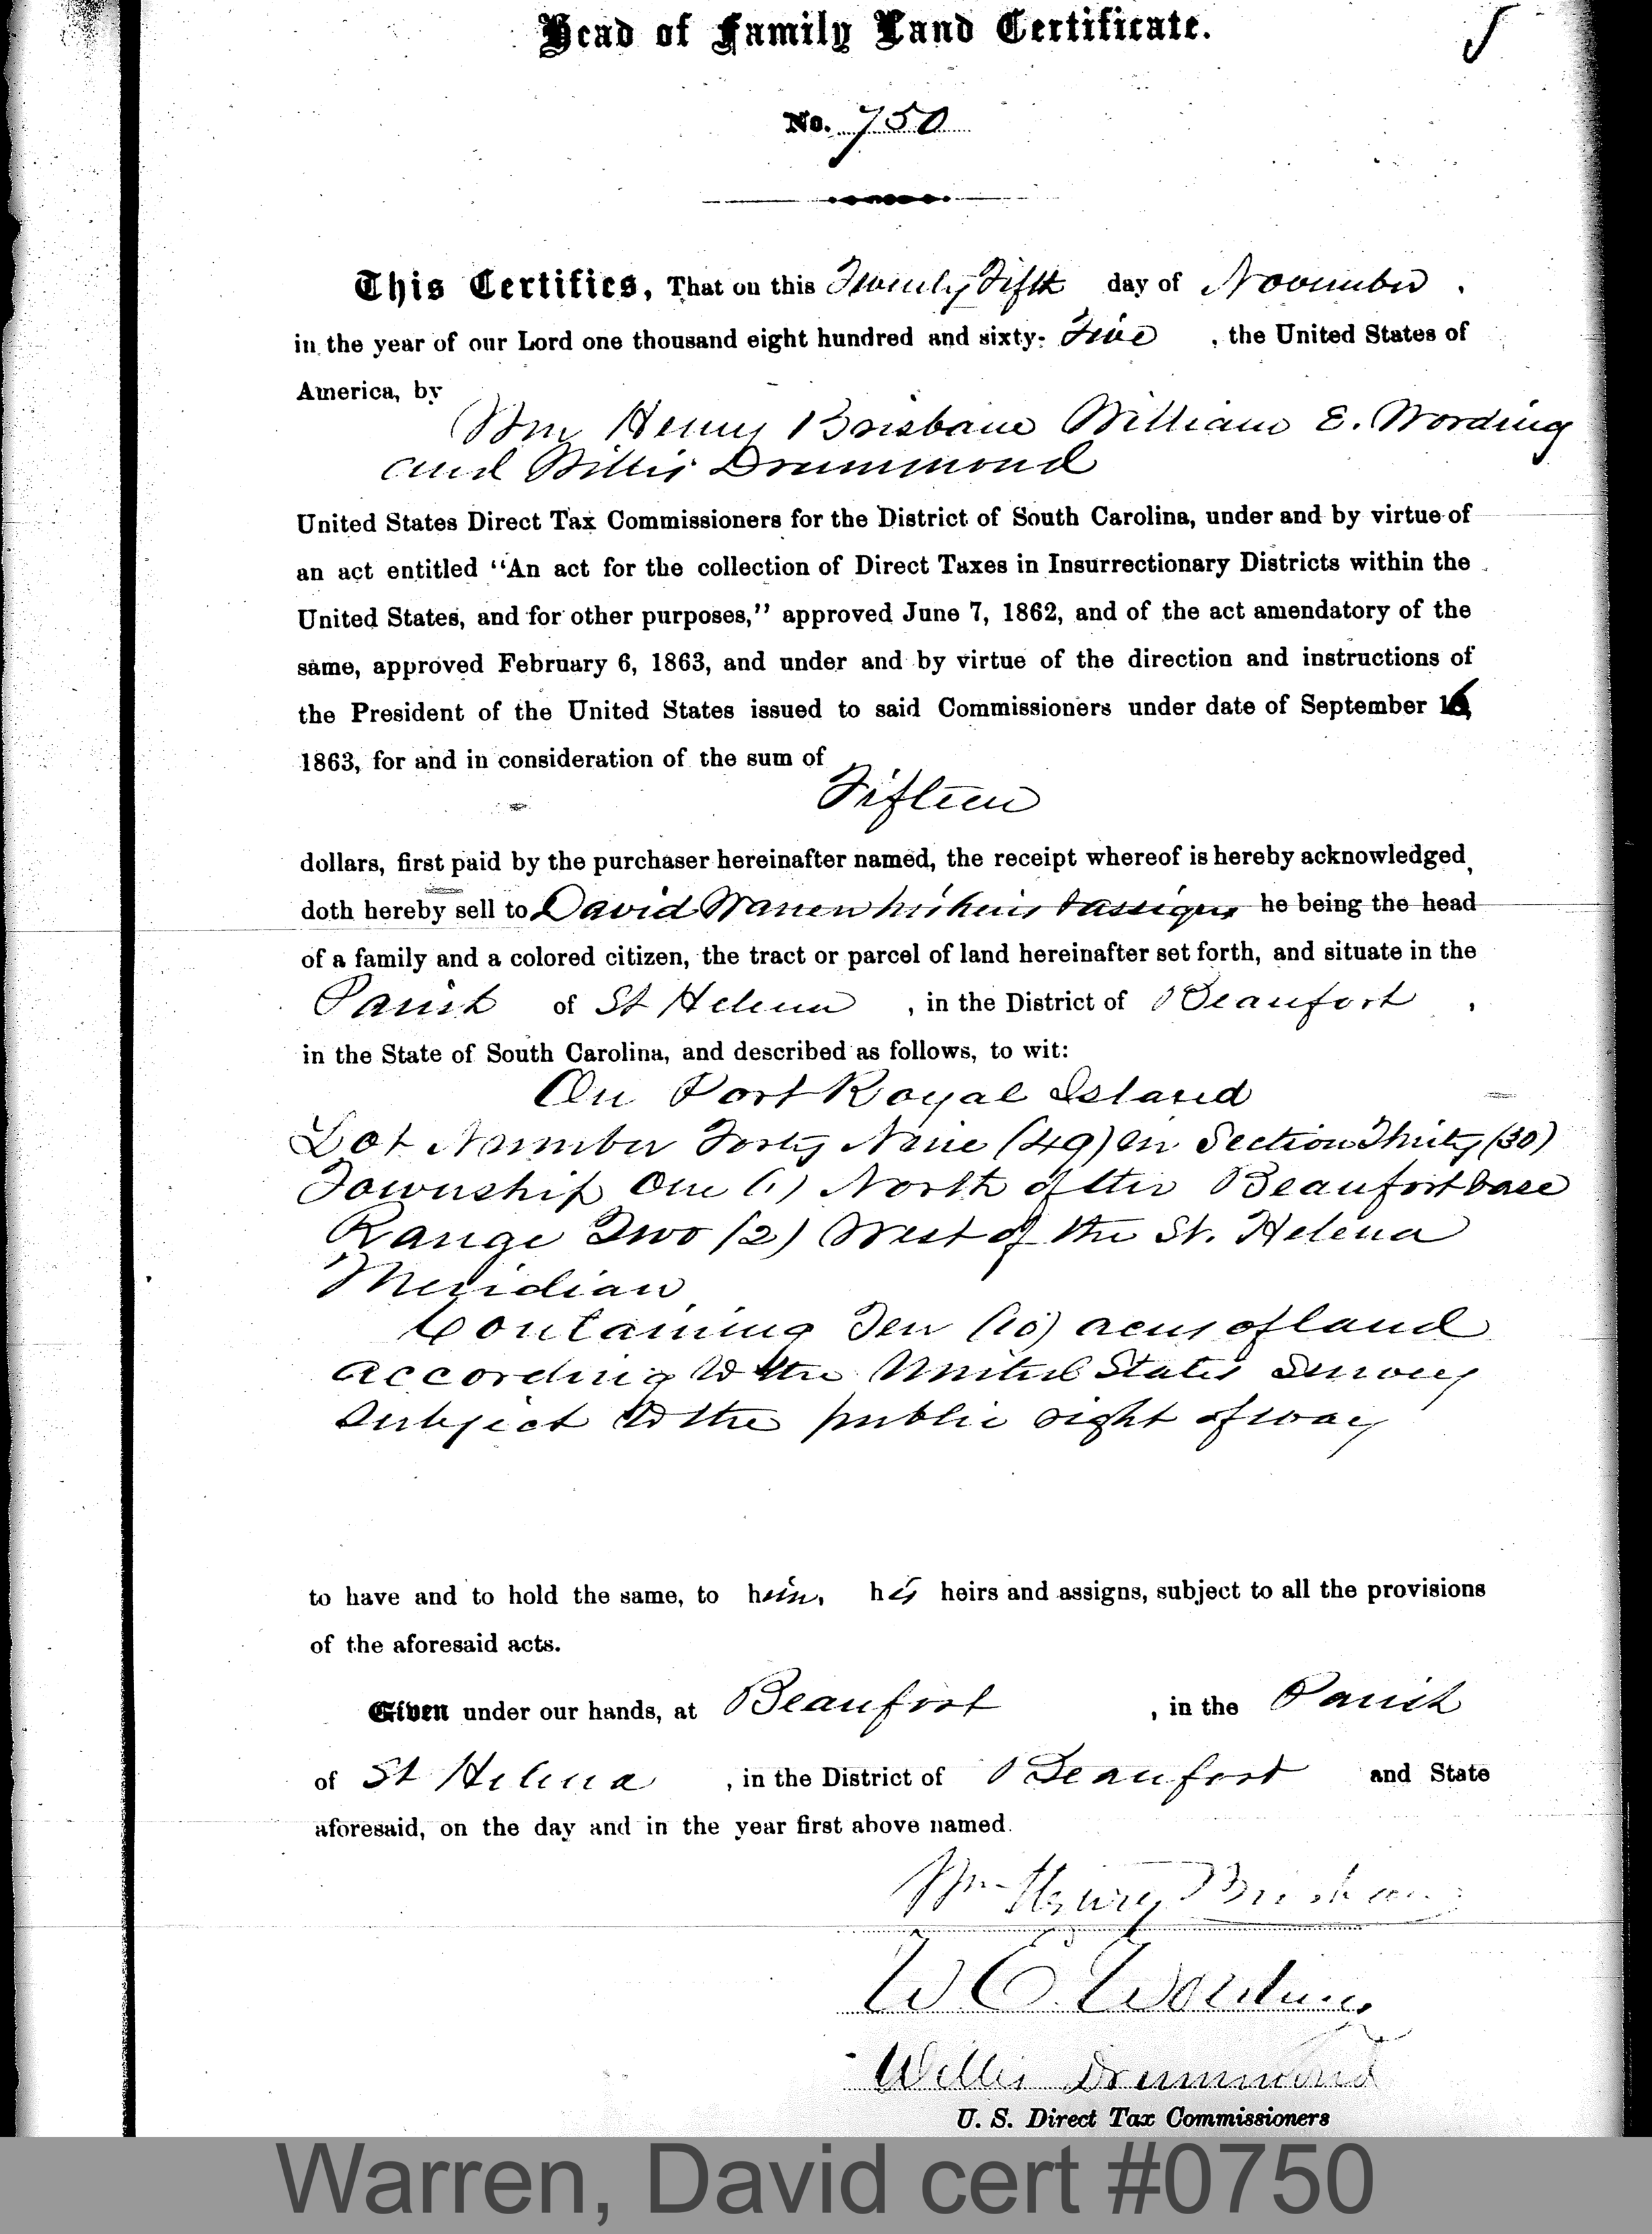 Head of Family Land Certificate.
No. 750
This Certifies, That on this Twenty Fifth day of November
in the year of our Lord one thousand eight hundred and sixty- Five , the United States of
America, by
Wm Henry Brisbane William E. Wording
and Willis Drummond
United States Direct Tax Commissioners for the District of South Carolina, under and by virtue of
an act entitled "An act for the collection of Direct Taxes in Insurrectionary Districts within the
United States, and for other purposes," approved June 7, 1862, and of the act amendatory of the
same, approved February 6, 1863, and under and by virtue of the direction and instructions of
the President of the United States issued to said Commissioners under date of September 16,
1863, for and in consideration of the sum of
Fifteen
dollars, first paid by the purchaser hereinafter named, the receipt whereof is hereby acknowledged,
doth hereby sell to David Warren his heirs & assigns he being the head
of a family and a colored citizen, the tract or parcel of land hereinafter set forth, and situate in the
Parish of St Helena , in the District of Beaufort ,
in the State of South Carolina, and described as follows, to wit:
On Port Royal Island
Lot Number Forty Nine (49) in Section Thirty (30)
Township One (1) North of the Beaufort base
Range Two (2) West of the St. Helena
Meridian
Containing Ten (10) acres of land
according to the United States Survey
Subject to the public right of way
to have and to hold the same, to him, his heirs and assigns, subject to all the provisions
of the aforesaid acts.
Given under our hands, at Beaufort , in the Parish
of St Helena , in the District of Beaufort and State
aforesaid, on the day and in the year first above named.
Wm Henry Brisbane
W. E. Wording
Willis Drummond
U. S. Direct Tax Commissioners
Warren, David cert #0750